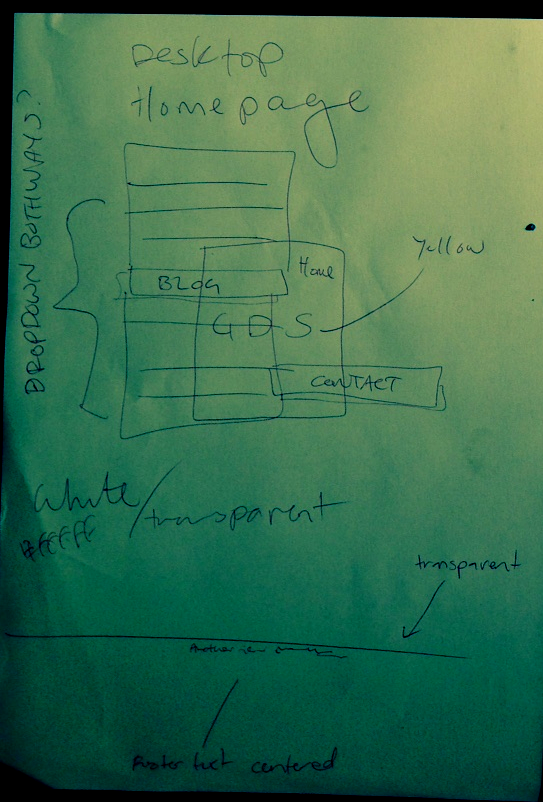 Desktop
Homepage
DROPDOWN BOTHWAYS?
Yellow
Home
BLOG
GDS
CONTACT
White/transparent
#ffffff
transparent
Another
Footer text centered